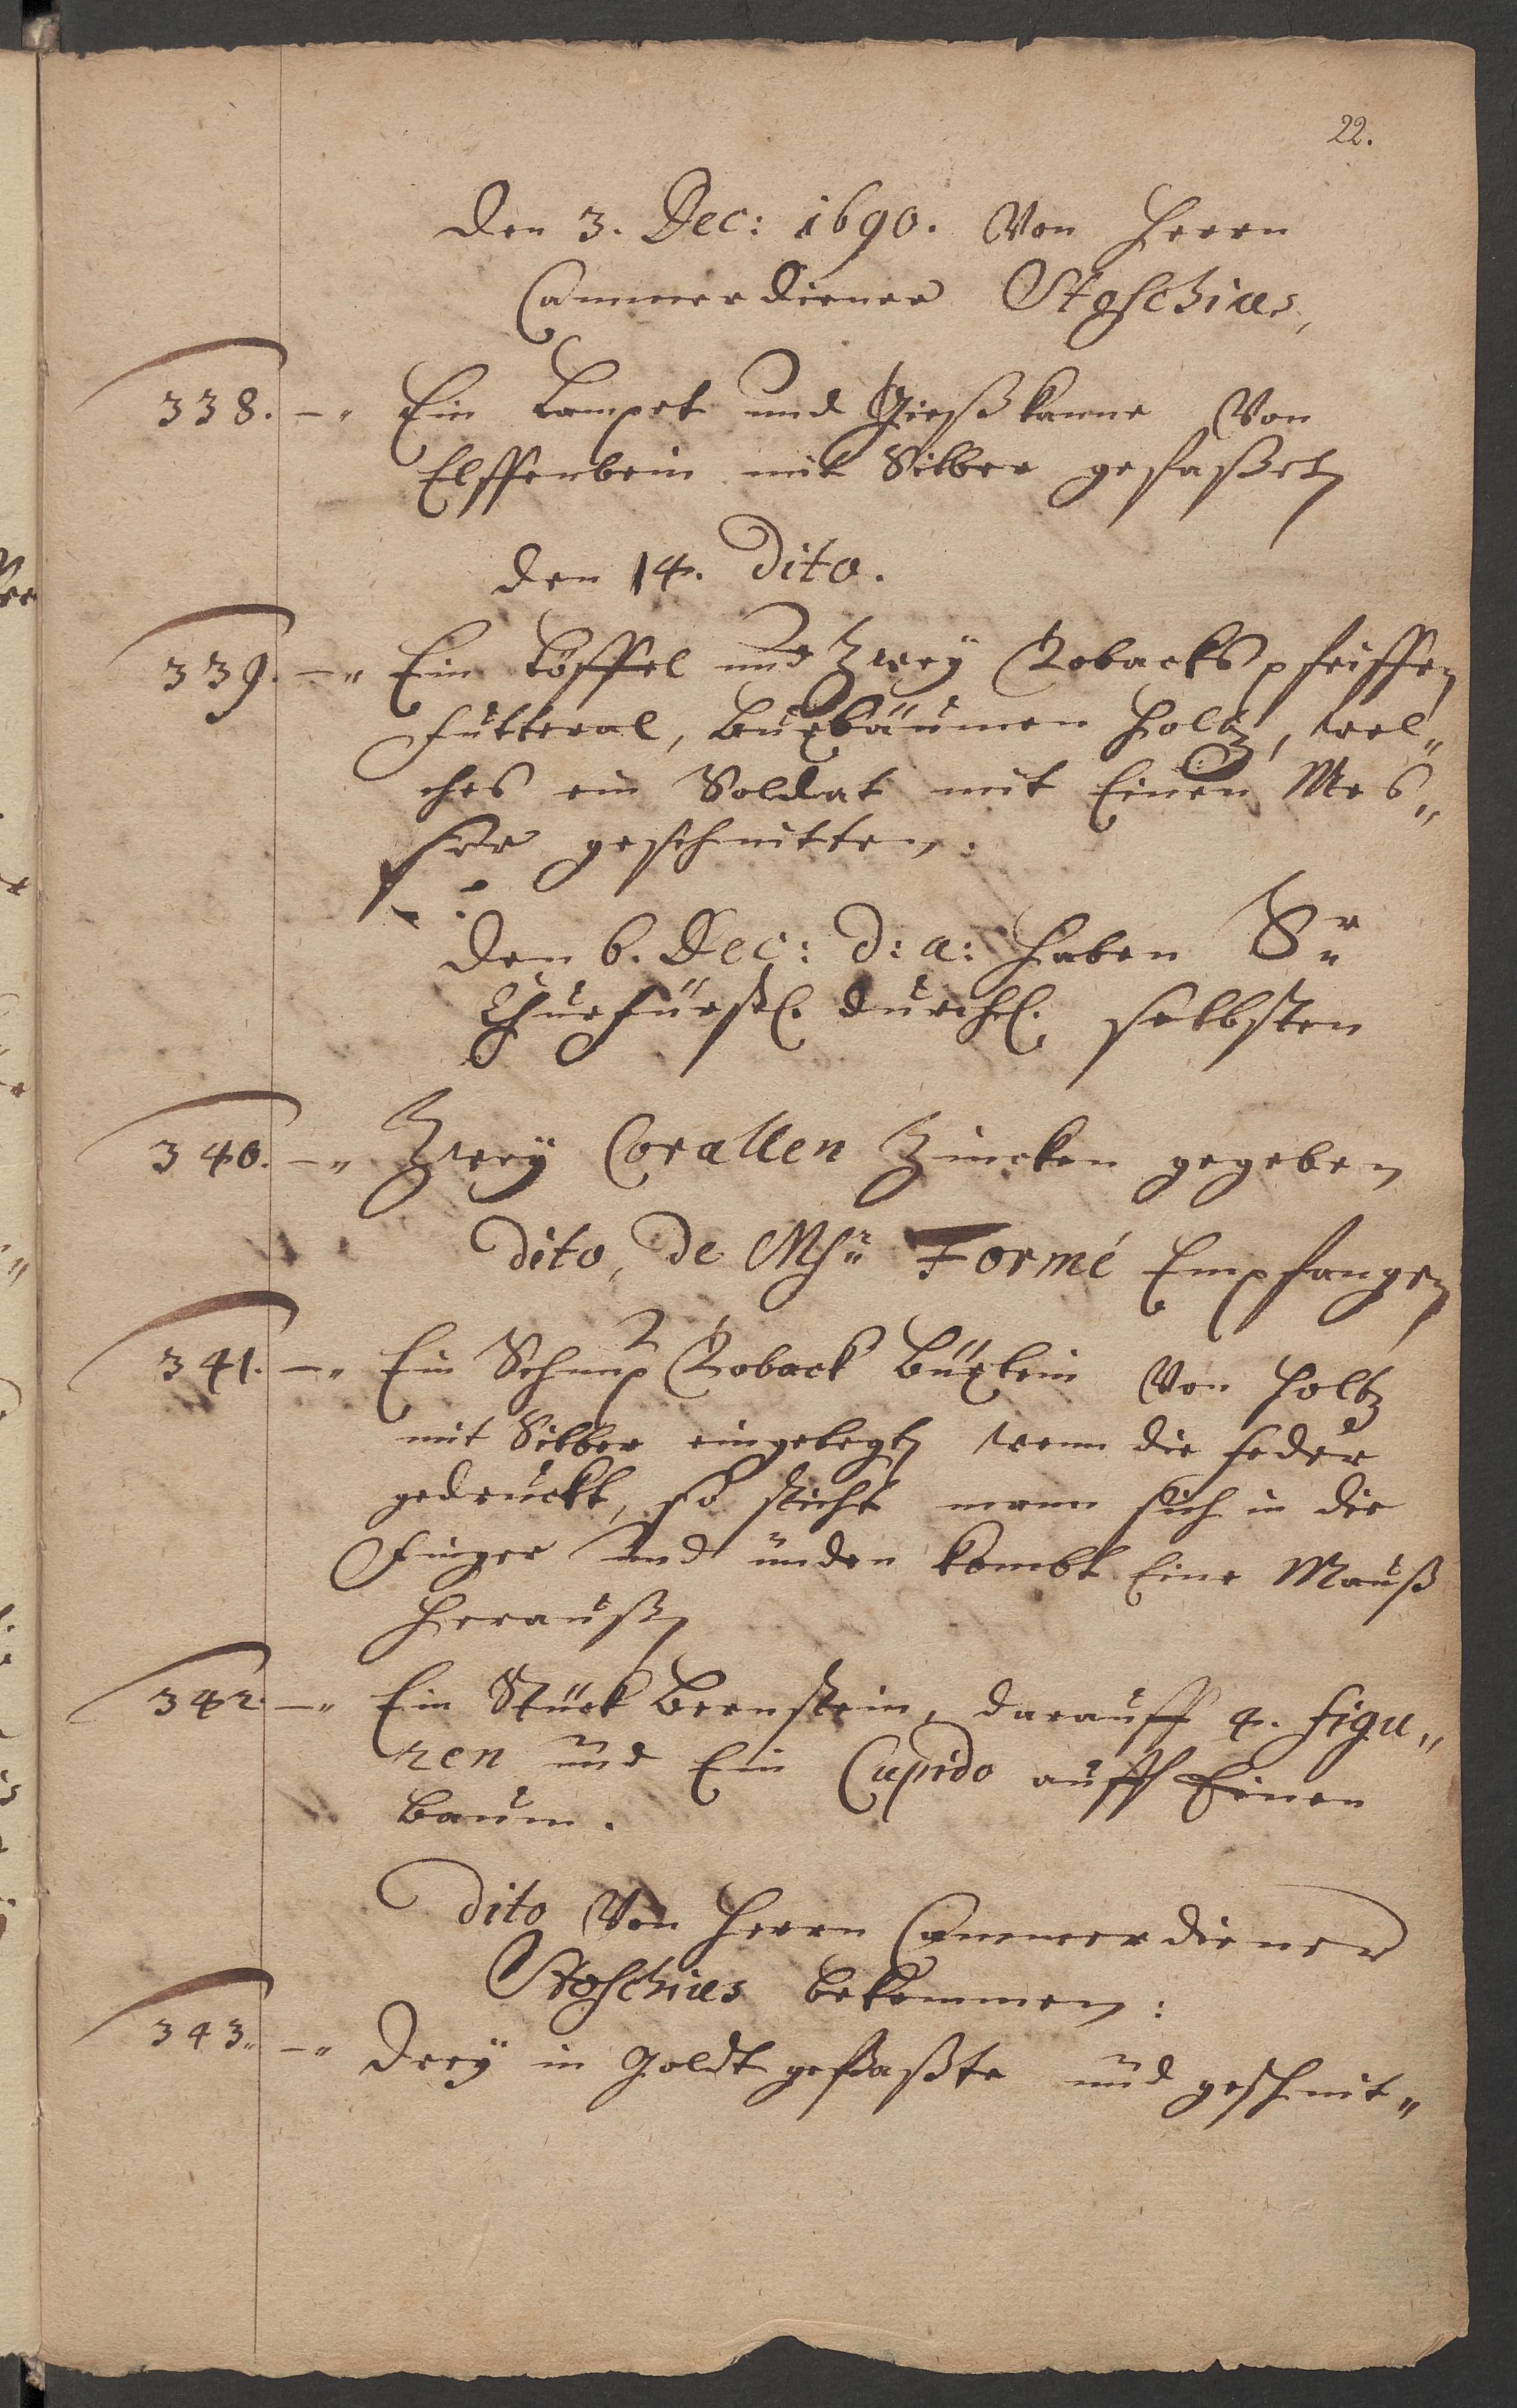 22.
Den 3. Dec: 1690. Von Herrn
Cammerdiener Stoschius,
338. -" Ein Lampet und Gießkanne Von
Elffenbein mit Silber gefaßet
Den 14. Dito.
339. -" Ein Löffel und Zweÿ Tobacks pfeiffen
Futteral, buxbäumen Holtz, wel"
ches ein Soldat mit Einen Mes"
ser geschnitten.
Den 6. Dec: d: a: haben Sr
Churfürstl. Durchl. selbsten
340. -" Zweÿ Corallen Zincken gegeben
Dito, de Msr Formé Empfangen
341. -" Ein Schnup Toback büxlein Von Holtz
mit Silber eingelegt wenn die feder
gedruckt, so sticht mann sich in die
Finger und unden kombt Eine Mauß
herauß
342. -" Ein Stück bernstein, darauff 4. figu"
ren und Ein Cupido auff Einen
baum.
Dito Von Herrn Cammerdiener
Stoschius bekommen:
343. -" Dreÿ in Goldt gefaßte und geschnit"